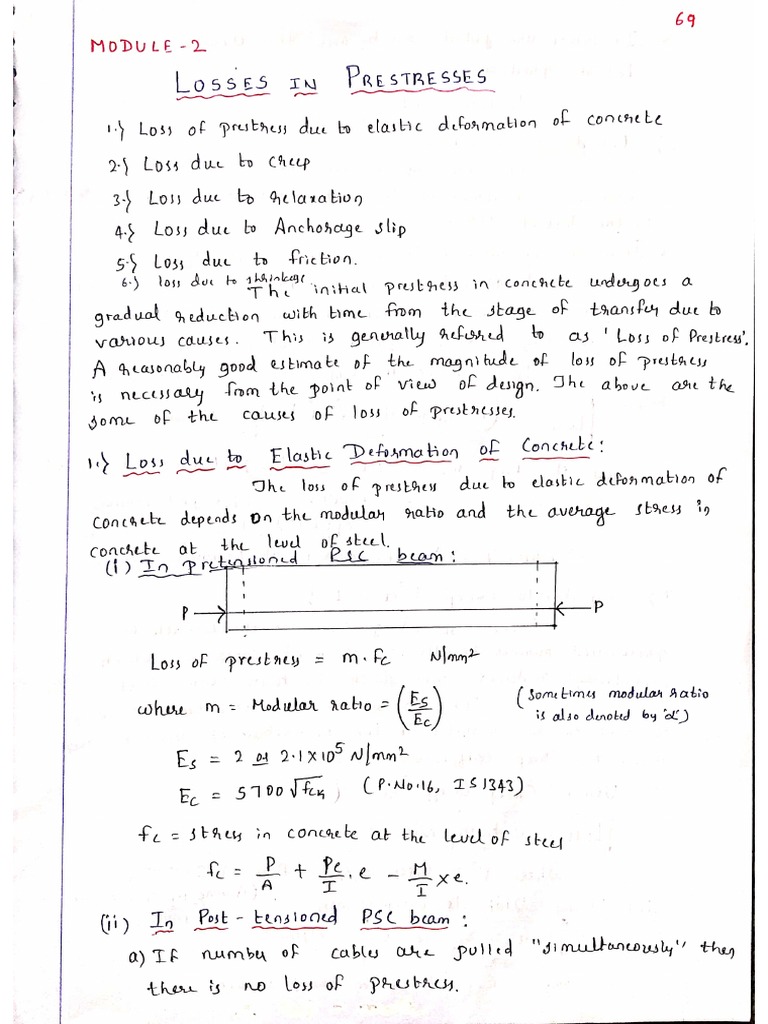 69
MODULE-2
LOSSES IN PRESTRESSES
1.} Loss of prestress due to elastic deformation of concrete
2.} Loss due to creep
3.} Loss due to relaxation
4.} Loss due to Anchorage slip
5.} Loss due to friction.
6.} loss due to shrinkage
The initial prestress in concrete undergoes a
gradual reduction with time from the stage of transfer due to
various causes. This is generally referred to as 'Loss of Prestress'.
A reasonably good estimate of the magnitude of loss of prestress
is necessary from the point of view of design. The above are the
some of the causes of loss of prestresses.
1.} Loss due to Elastic Deformation of Concrete:
The loss of prestress due to elastic deformation of
concrete depends on the modular ratio and the average stress in
concrete at the level of steel.
(i) In pretensioned PSC beam:
P P
Loss of prestress = m.fc N/mm²
where m = Modular ratio = (Es/Ec) (Sometimes modular ratio
is also denoted by 'α')
Es = 2 or 2.1×10⁵ N/mm²
Ec = 5700√fck, (P.No.16, IS1343)
fc = stress in concrete at the level of steel
fc = P/A + Pe/I . e - M/I × e.
(ii) In Post-tensioned PSC beam:
a) If number of cables are pulled "simultaneously" then
there is no loss of prestress.